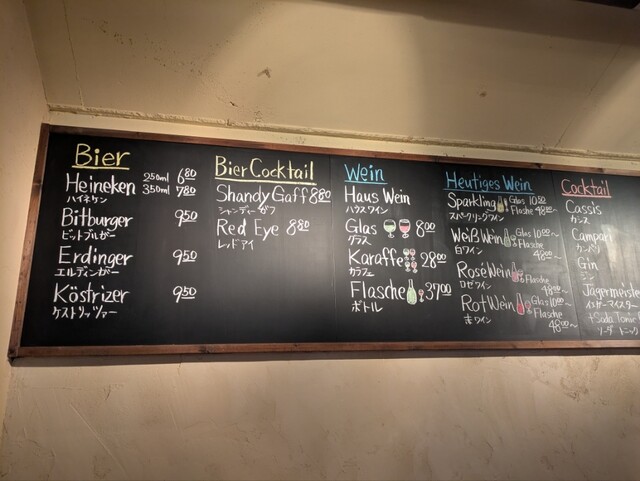 Bier
Heineken 250ml 680
350ml 780
ハイネケン
Bitburger 950
ビットブルガー
Erdinger 950
エルディンガー
Köstrizer 950
ケストリッツァー
BierCocktail
Shandy Gaff 880
シャンディーガフ
Red Eye 880
レッドアイ
Wein
Haus Wein
ハウスワイン
Glas 800
グラス
Karaffe 2800
カラフェ
Flasche 3700
ボトル
Heutiges Wein
Sparkling Glas 1000
Flasche 4800~
スパークリングワイン
Weiß Wein Glas 1000~
Flasche
白ワイン 4800~
Rosé Wein Flasche
ロゼワイン 4800~
Rot Wein Glas 1000~
Flasche
赤ワイン 4800~
Cocktail
Cassis
カシス
Campari
カンパリ
Gin
ジン
Jägermeiste
イエガーマイスター
+Soda Tonic
ソーダ トニ